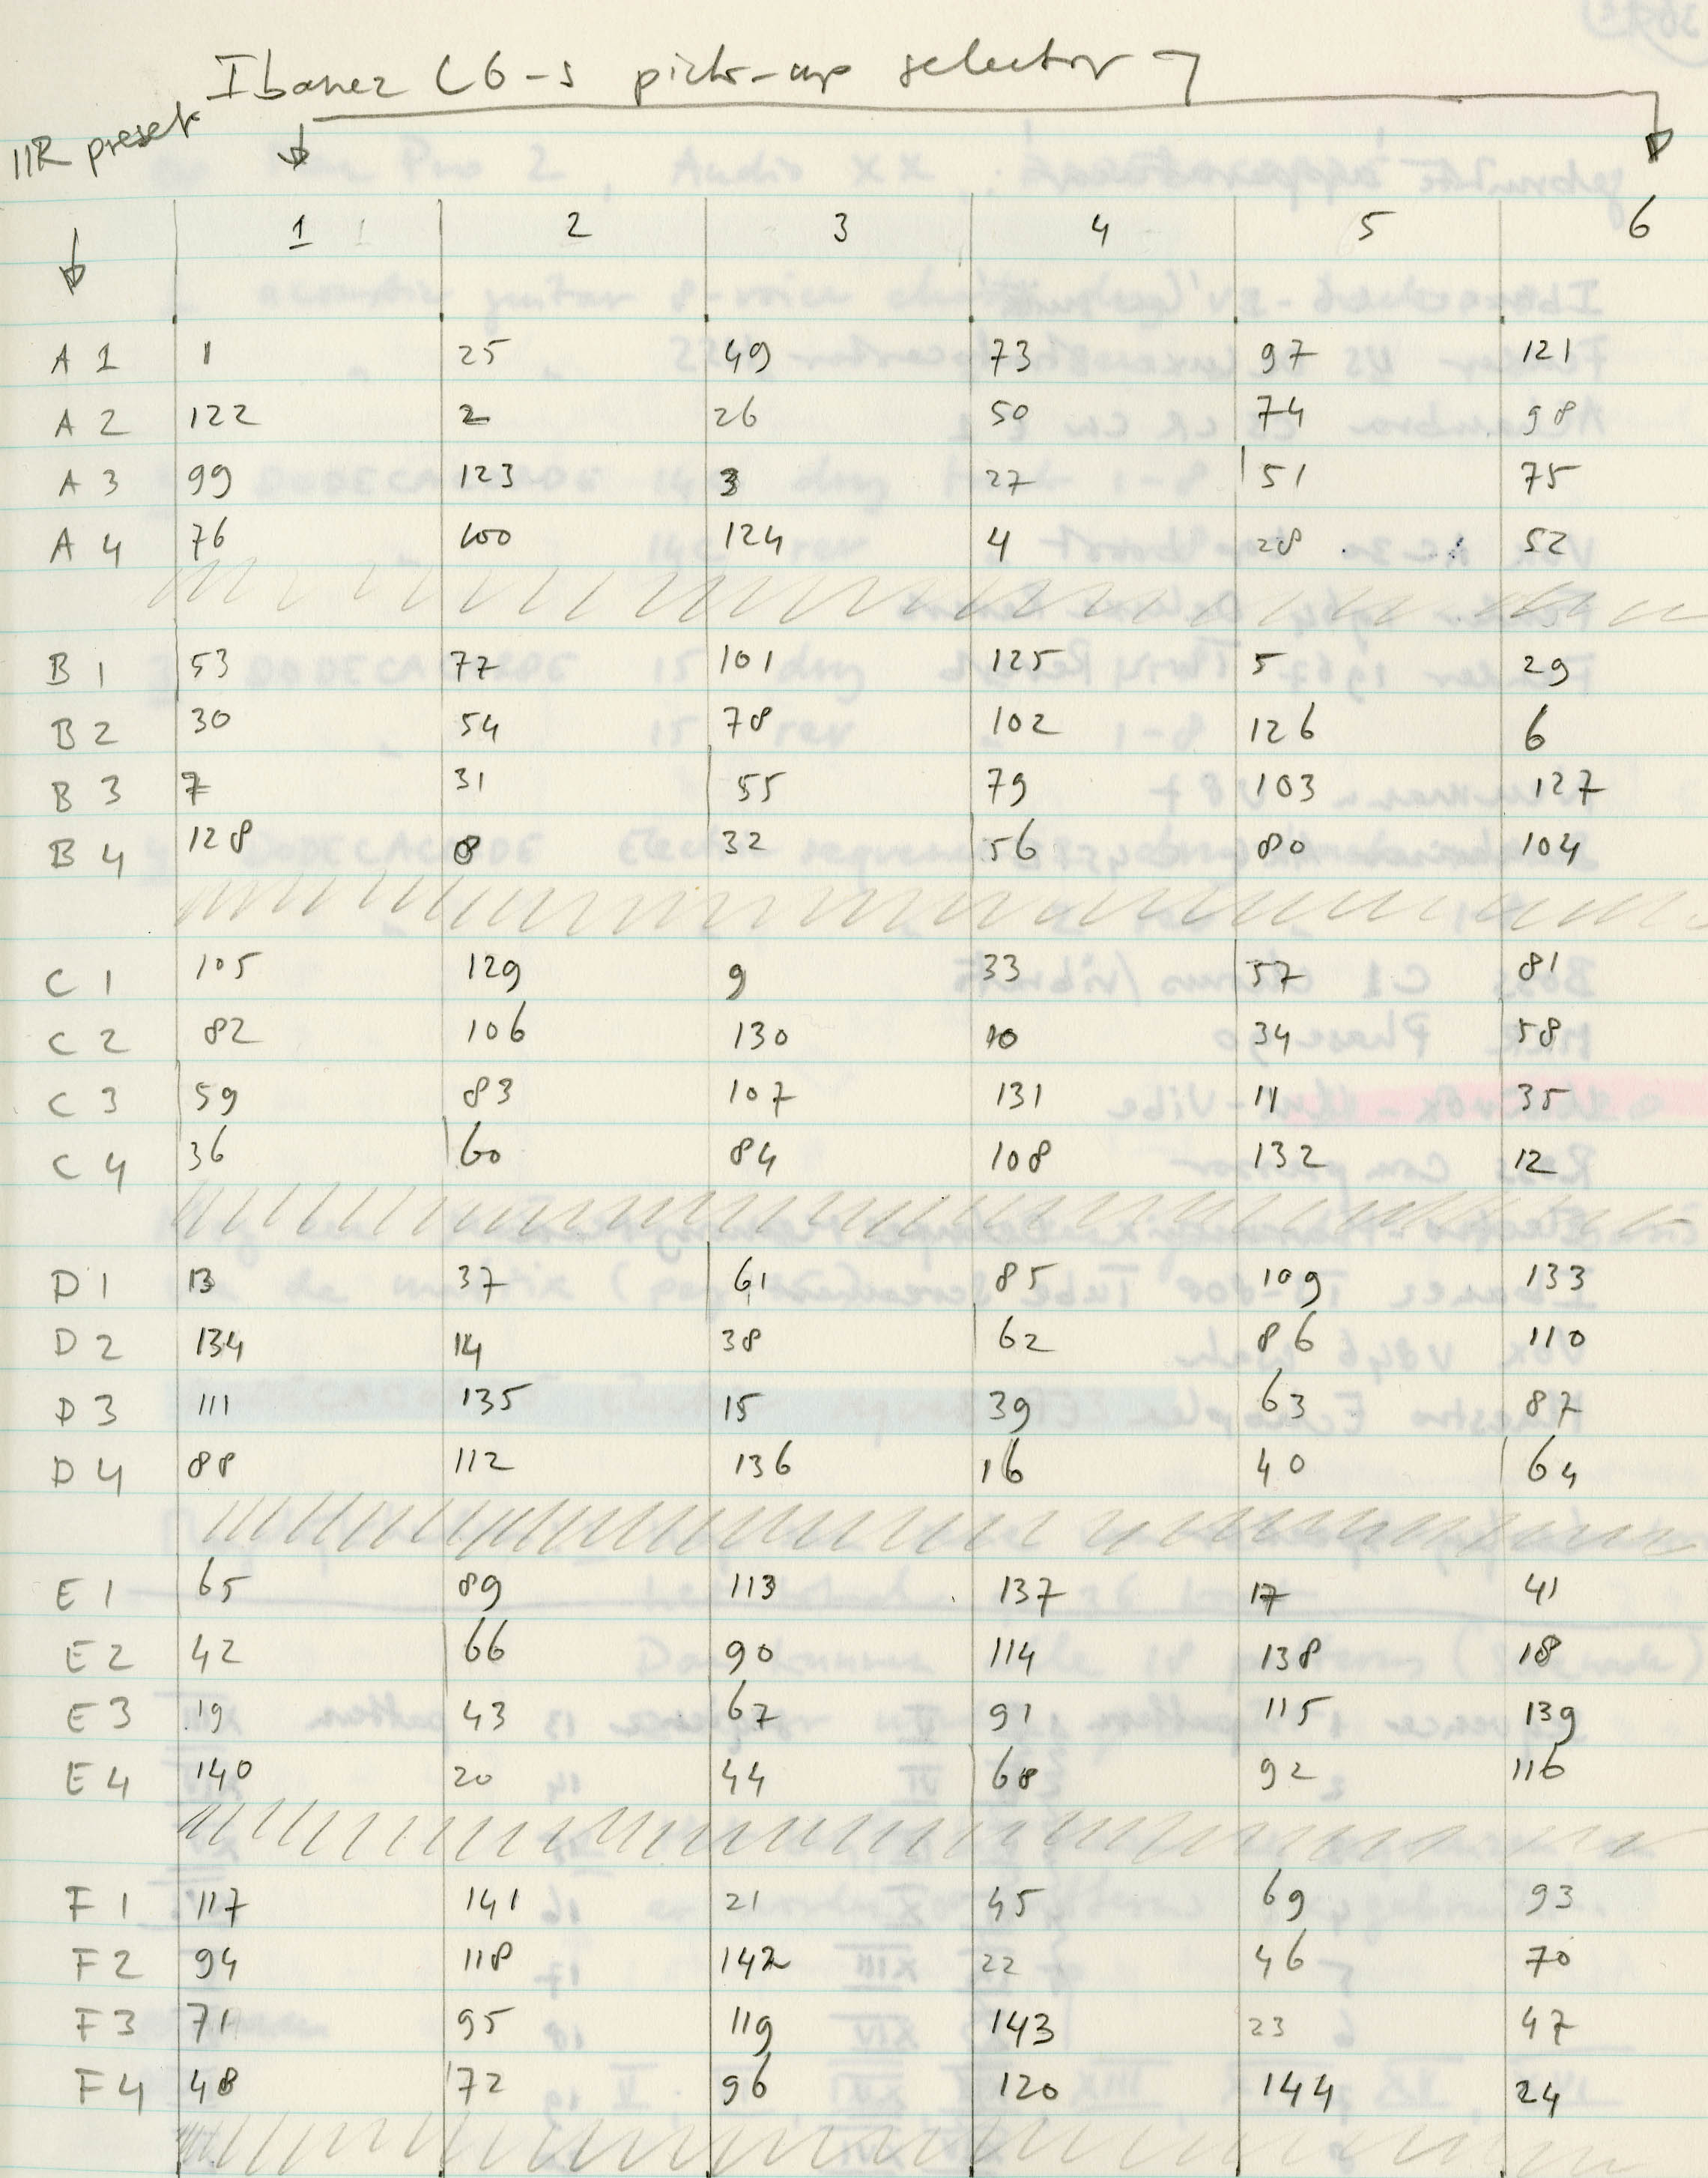 Ibanez C6-s pick-up selector
IIR preset
1 2 3 4 5 6
A 1 1 25 49 73 97 121
A 2 122 2 26 50 74 98
A 3 99 123 3 27 51 75
A 4 76 100 124 4 28 52
B 1 53 77 101 125 5 29
B 2 30 54 78 102 126 6
B 3 7 31 55 79 103 127
B 4 128 8 32 56 80 104
C 1 105 129 9 33 57 81
C 2 82 106 130 10 34 58
C 3 59 83 107 131 11 35
C 4 36 60 84 108 132 12
D 1 13 37 61 85 109 133
D 2 134 14 38 62 86 110
D 3 111 135 15 39 63 87
D 4 88 112 136 16 40 64
E 1 65 89 113 137 17 41
E 2 42 66 90 114 138 18
E 3 19 43 67 91 115 139
E 4 140 20 44 68 92 116
F 1 117 141 21 45 69 93
F 2 94 118 142 22 46 70
F 3 71 95 119 143 23 47
F 4 48 72 96 120 144 24